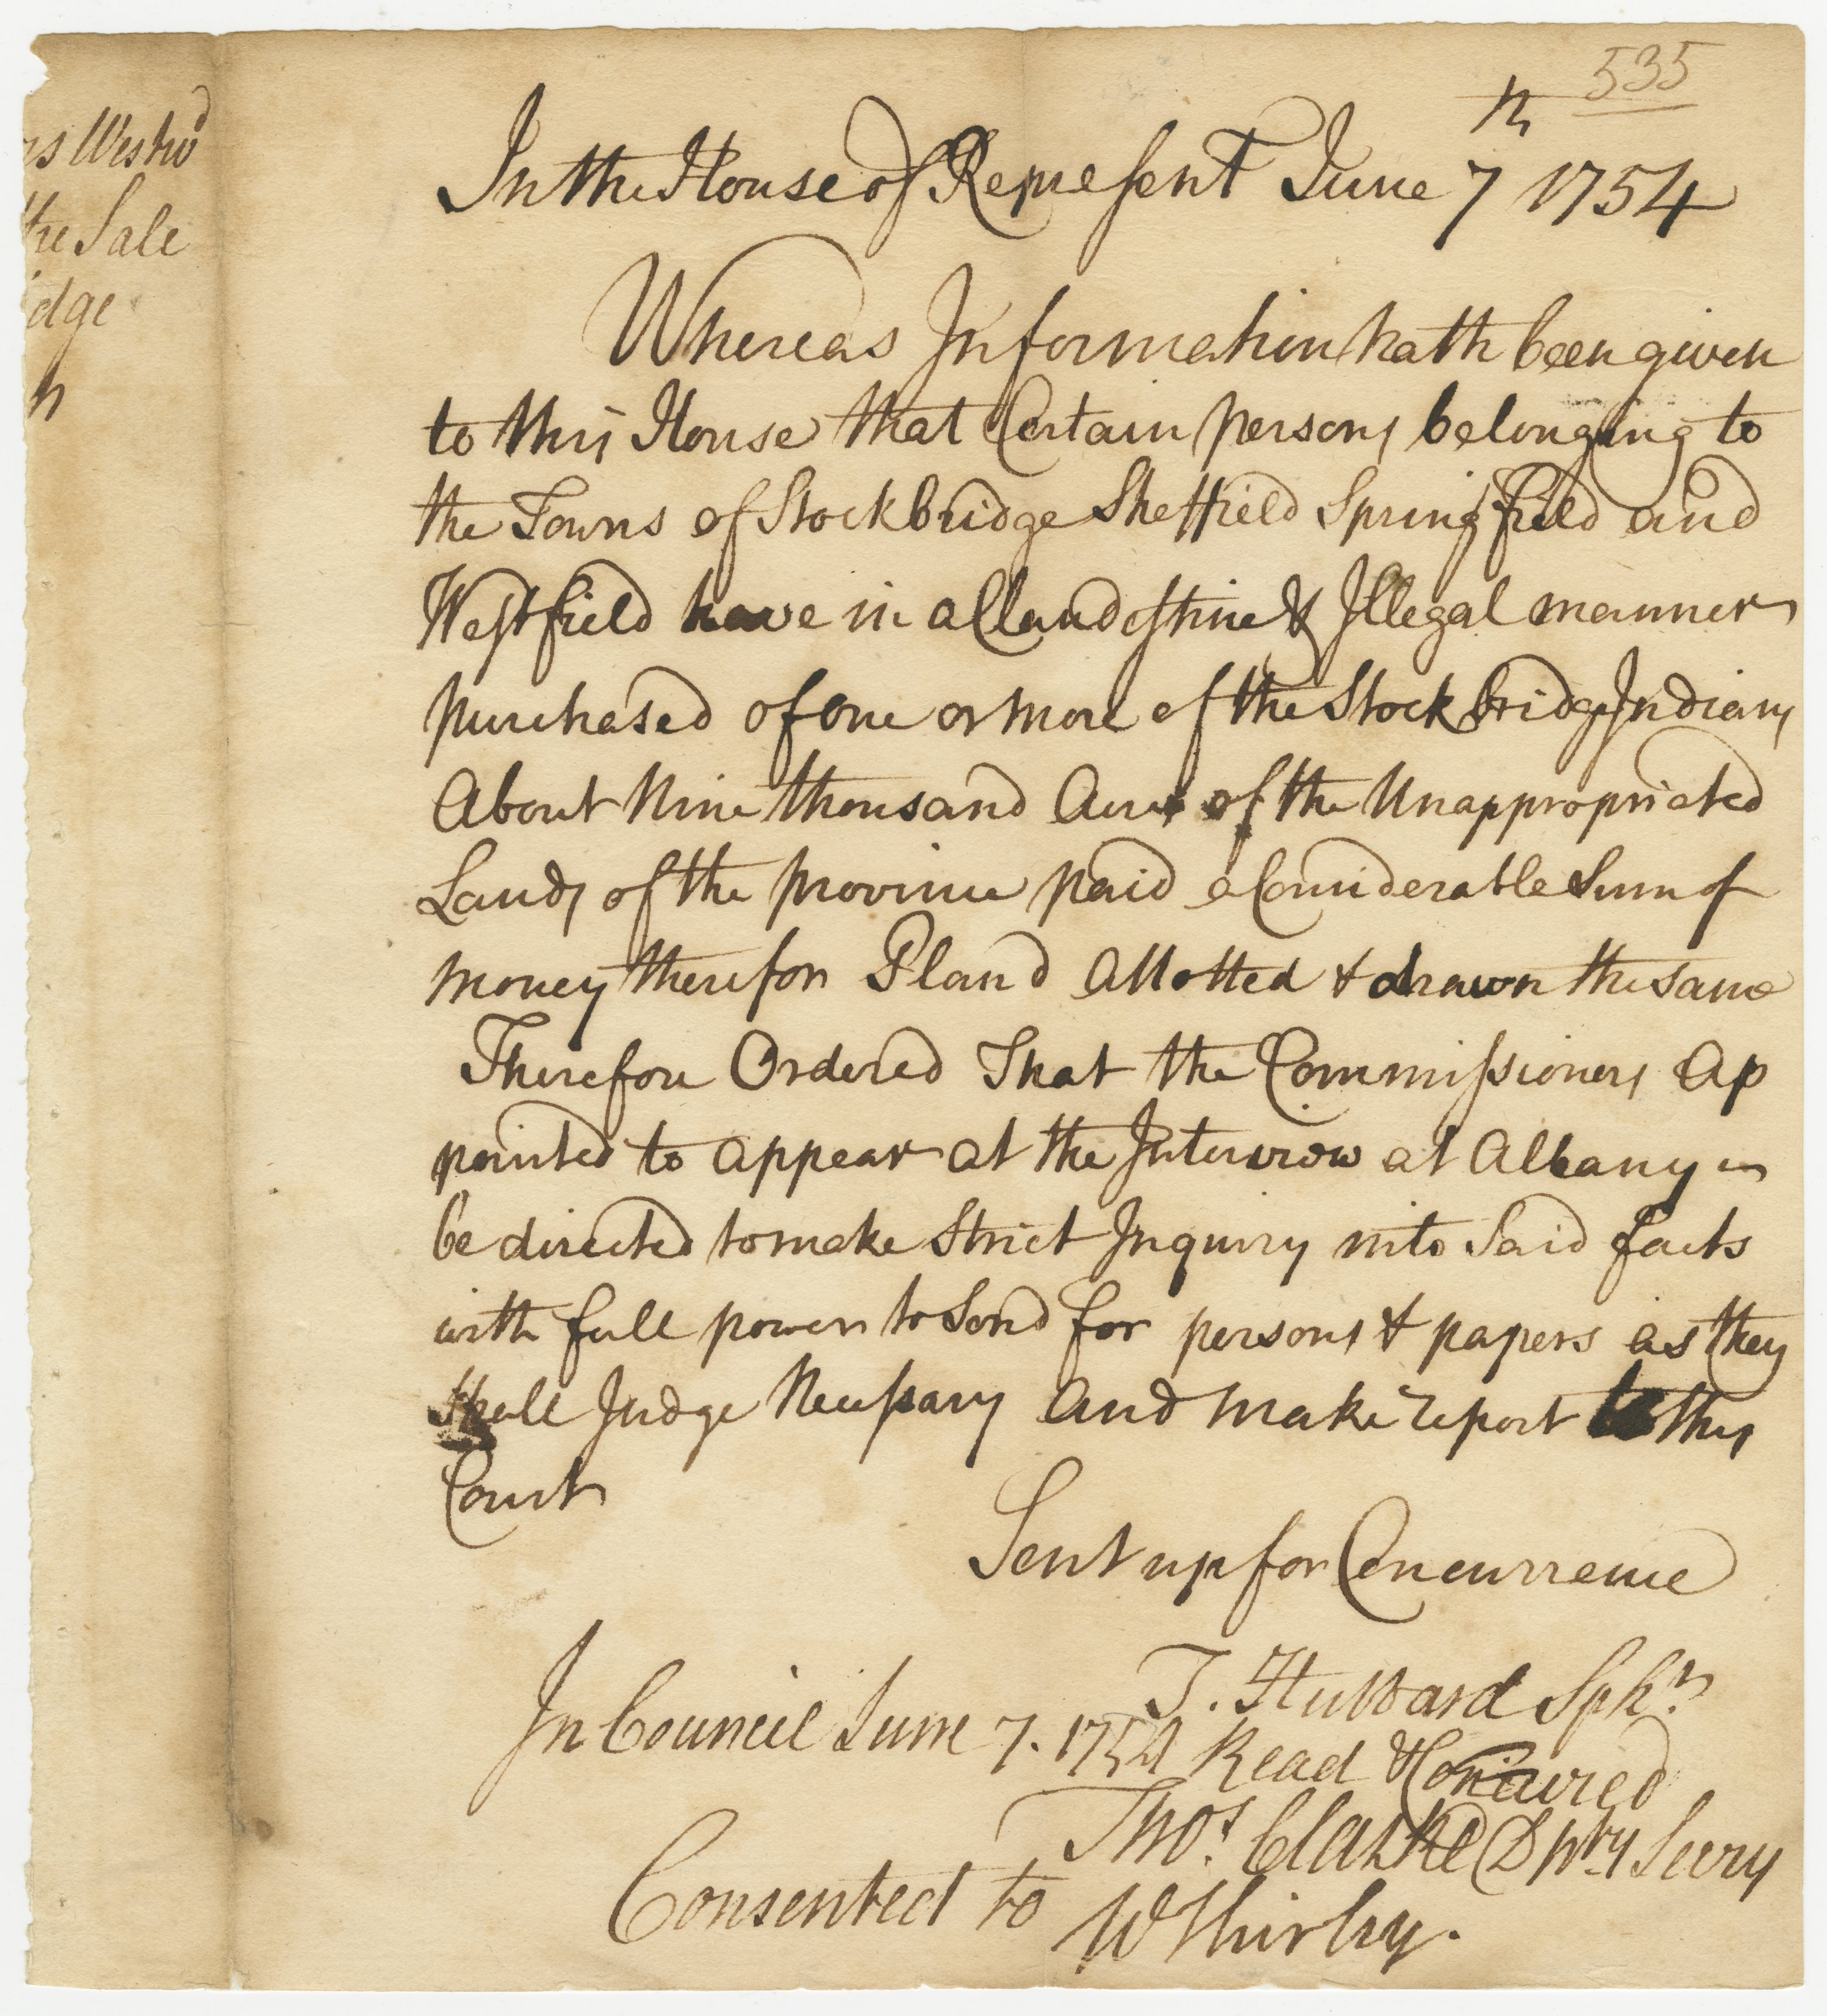 535
In the House of Represent June 7th 1754
Whereas Information hath been given
to this House that Certain persons belonging to
the Towns of Stockbridge Sheffield Springfield and
Westfield have in a Clandestine & Illegal manner
purchased of one or more of the Stockbridge Indians
About Nine thousand Acres of the Unappropriated
Lands of the province paid a Considerable Sum of
money therefor Pland Allotted & drawn the same
Therefore Ordered That the Commissioners Ap
pointed to appear at the Interview at Albany
be directed to make Strict Inquiry into Said facts
with full power to Send for persons & papers as they
Shall Judge Necessary And make report to this
Court
Sent up for Concurrence
T. Hubbard Spkr.
In Council June 7. 1754 Read & Concurred
Thos. Clarke Dpty Secry
Consented to
W Shirley.
ns Westwd
the Sale
idge
h